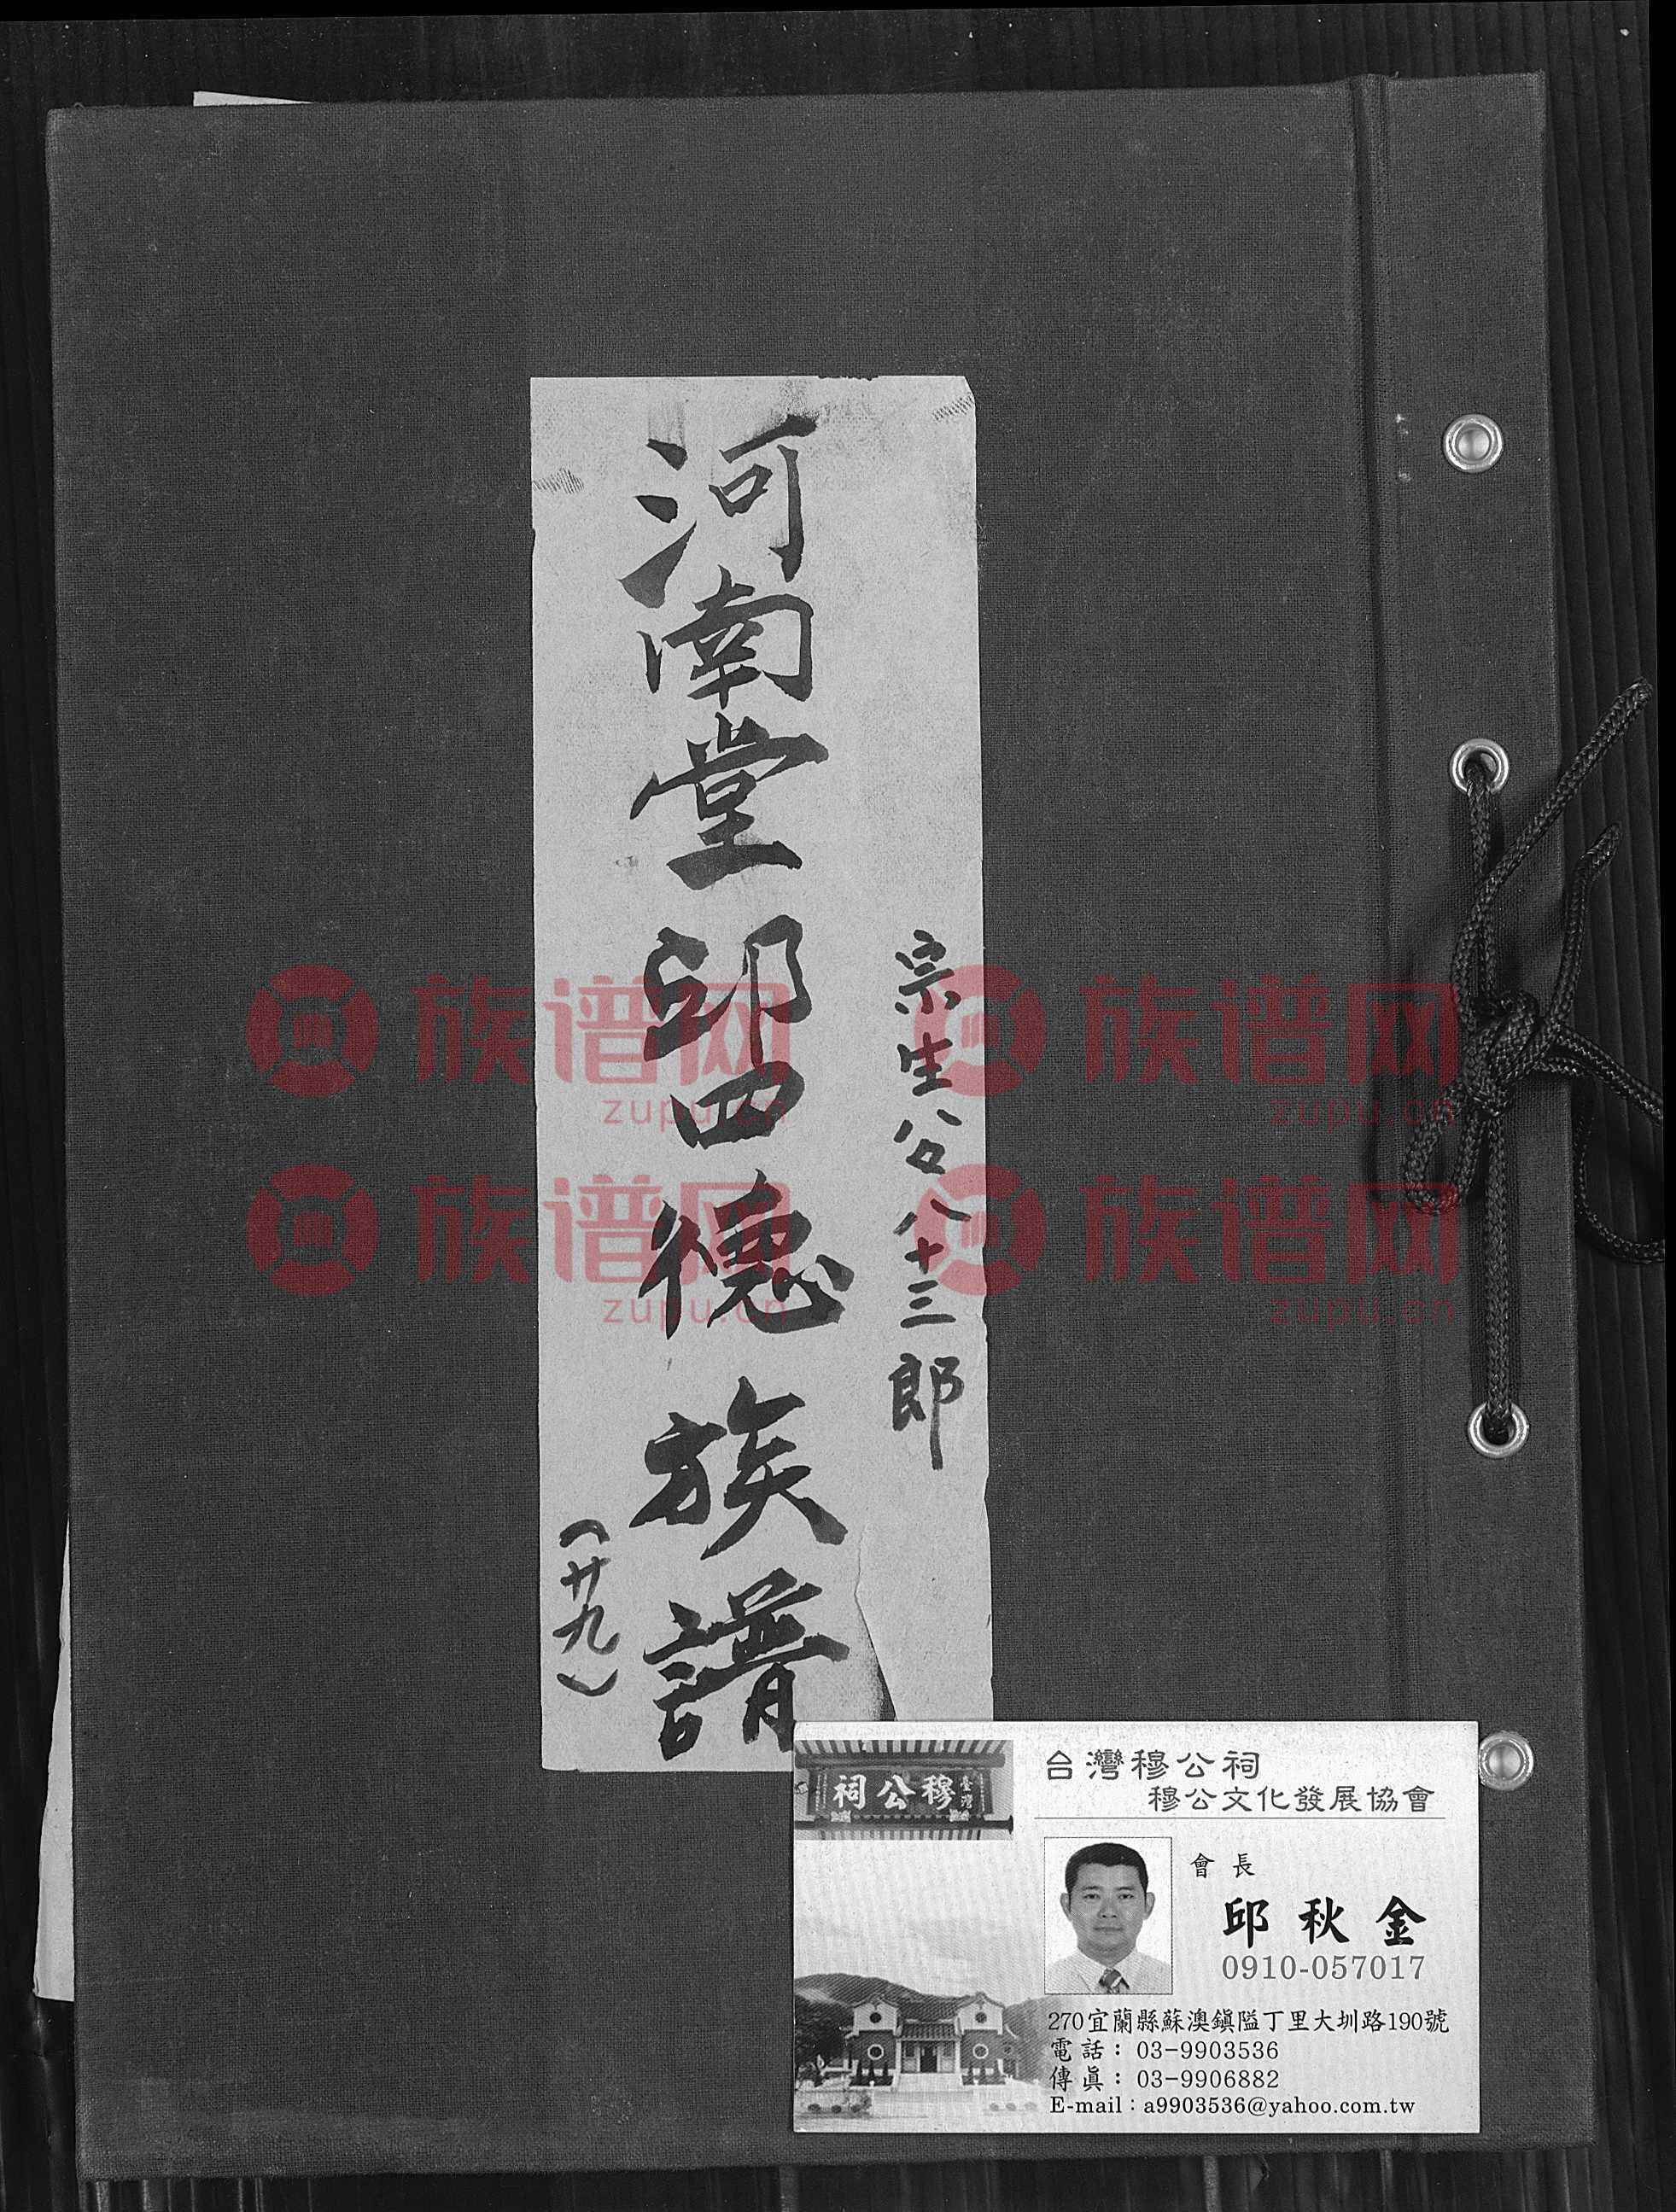 宗生公八十三郎
河南堂邱四德族譜
(廿九)
族谱网 族谱网
zupu.cn zupu.cn
族谱网 族谱网
zupu.cn zupu.cn
臺灣
穆公祠
台灣穆公祠
穆公文化發展協會
會長
邱秋金
0910-057017
270宜蘭縣蘇澳鎮隘丁里大圳路190號
電話：03-9903536
傳眞：03-9906882
E-mail：a9903536@yahoo.com.tw